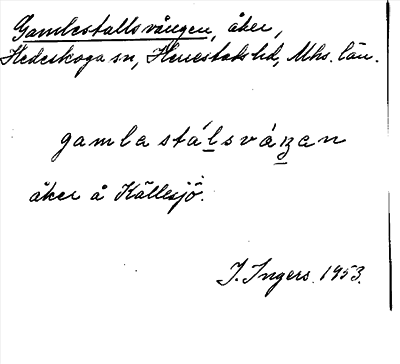 Gamlestallsvången, åker,
Hedeskoga sn, Herrestads hd, Mhs. län.
gamla stálsváŋen
åker å Källesjö.
I. Ingers. 1953.